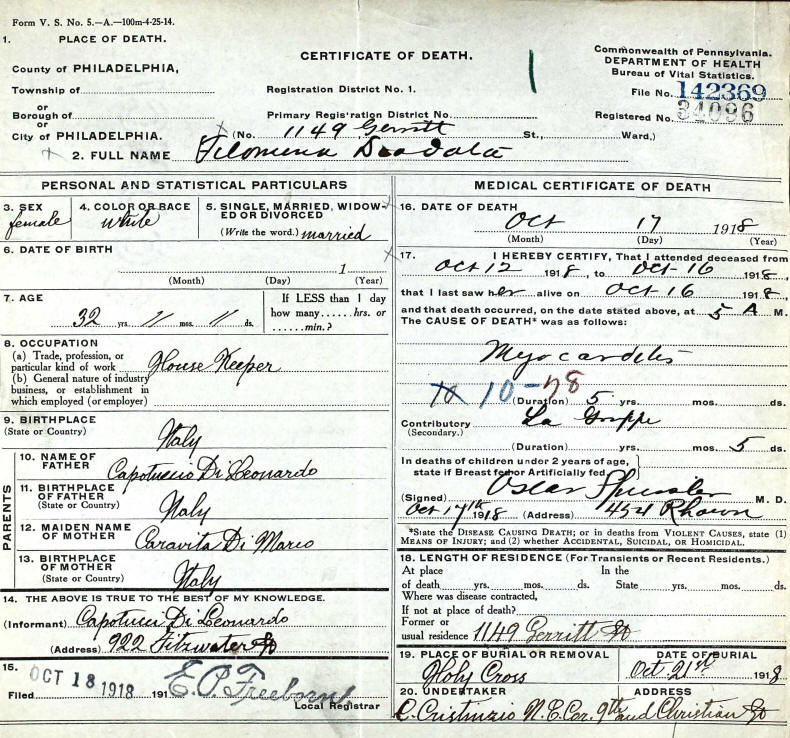 Form V. S. No. 5.—A.—100m-4-25-14.
1. PLACE OF DEATH.
County of PHILADELPHIA,
Township of
or
Borough of
or
City of PHILADELPHIA.
CERTIFICATE OF DEATH.
Registration District No. 1.
Primary Registration District No.
(No. 1149 Gerritt St., Ward.)
Commonwealth of Pennsylvania.
DEPARTMENT OF HEALTH
Bureau of Vital Statistics.
File No. 142369
Registered No. 34096
2. FULL NAME Filomena
PERSONAL AND STATISTICAL PARTICULARS
3. SEX
female
4. COLOR OR RACE
white
5. SINGLE, MARRIED, WIDOW-
ED OR DIVORCED
(Write the word.) married
6. DATE OF BIRTH
1
(Month) (Day) (Year)
7. AGE
32 yrs. 11 mos. 11 ds.
If LESS than 1 day
how many......hrs. or
......min.?
8. OCCUPATION
(a) Trade, profession, or
particular kind of work House Keeper
(b) General nature of industry
business, or establishment in
which employed (or employer)
9. BIRTHPLACE
(State or Country)
Italy
PARENTS
10. NAME OF
FATHER
Capotuccio Di Leonardo
11. BIRTHPLACE
OF FATHER
(State or Country)
Italy
12. MAIDEN NAME
OF MOTHER
Caravita Di Marco
13. BIRTHPLACE
OF MOTHER
(State or Country)
Italy
14. THE ABOVE IS TRUE TO THE BEST OF MY KNOWLEDGE.
(Informant) Capotucci Di Leonardo
(Address) 922 Fitzwater St
15.
OCT 18 1918
Filed 191 E. P. Freeborn
Local Registrar
MEDICAL CERTIFICATE OF DEATH
16. DATE OF DEATH
Oct 17 1918
(Month) (Day) (Year)
17. I HEREBY CERTIFY, That I attended deceased from
Oct 12 1918, to Oct 16 1918,
that I last saw her alive on Oct 16 1918,
and that death occurred, on the date stated above, at 5 A M.
The CAUSE OF DEATH* was as follows:
Myocarditis
10-78
(Duration) 5 yrs. mos. ds.
Contributory La Grippe
(Secondary.)
(Duration) yrs. mos. 5 ds.
In deaths of children under 2 years of age,
state if Breast fed or Artificially fed
(Signed) Oscar M. D.
Oct 17th 1918 (Address) Rhawn
*State the DISEASE CAUSING DEATH; or in deaths from VIOLENT CAUSES, state (1)
MEANS OF INJURY; and (2) whether ACCIDENTAL, SUICIDAL, OR HOMICIDAL.
18. LENGTH OF RESIDENCE (For Transients or Recent Residents.)
At place In the
of death yrs. mos. ds. State yrs. mos. ds.
Where was disease contracted,
If not at place of death?
Former or
usual residence 1149 Gerritt St
19. PLACE OF BURIAL OR REMOVAL
Holy Cross
DATE OF BURIAL
Oct 21st 1918
20. UNDERTAKER ADDRESS
C. Cristinzio N.E. Cor. 9th and Christian St